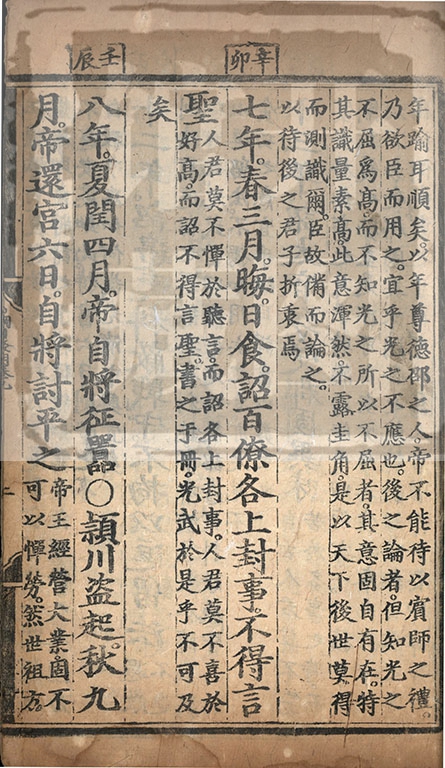 辛卯
壬辰
年踰耳順矣。以年尊德卲之人。帝不能待以賓師之禮。
乃欲臣而用之。宜乎光之不應也。後之論者。但知光之
不屈爲高。而不知光之所以不屈者。其意固自有在。特
其識量素高。此意渾然。不露圭角。是以天下後世。莫得
而測識爾。臣故備而論之。
以待後之君子折衷焉
七年。春三月。晦。日食。詔百僚各上封事。不得言
聖
人君莫不憚於聽言。而詔各上封事。人君莫不喜於
好高。而詔不得言聖。書之于冊。光武於是乎不可及
矣
八年。夏閏四月。帝自將征嚻〇潁川盗起。秋九
月。帝還宮六日。自將討平之
帝王經營大業。固不
可以憚勞。然世祖方。